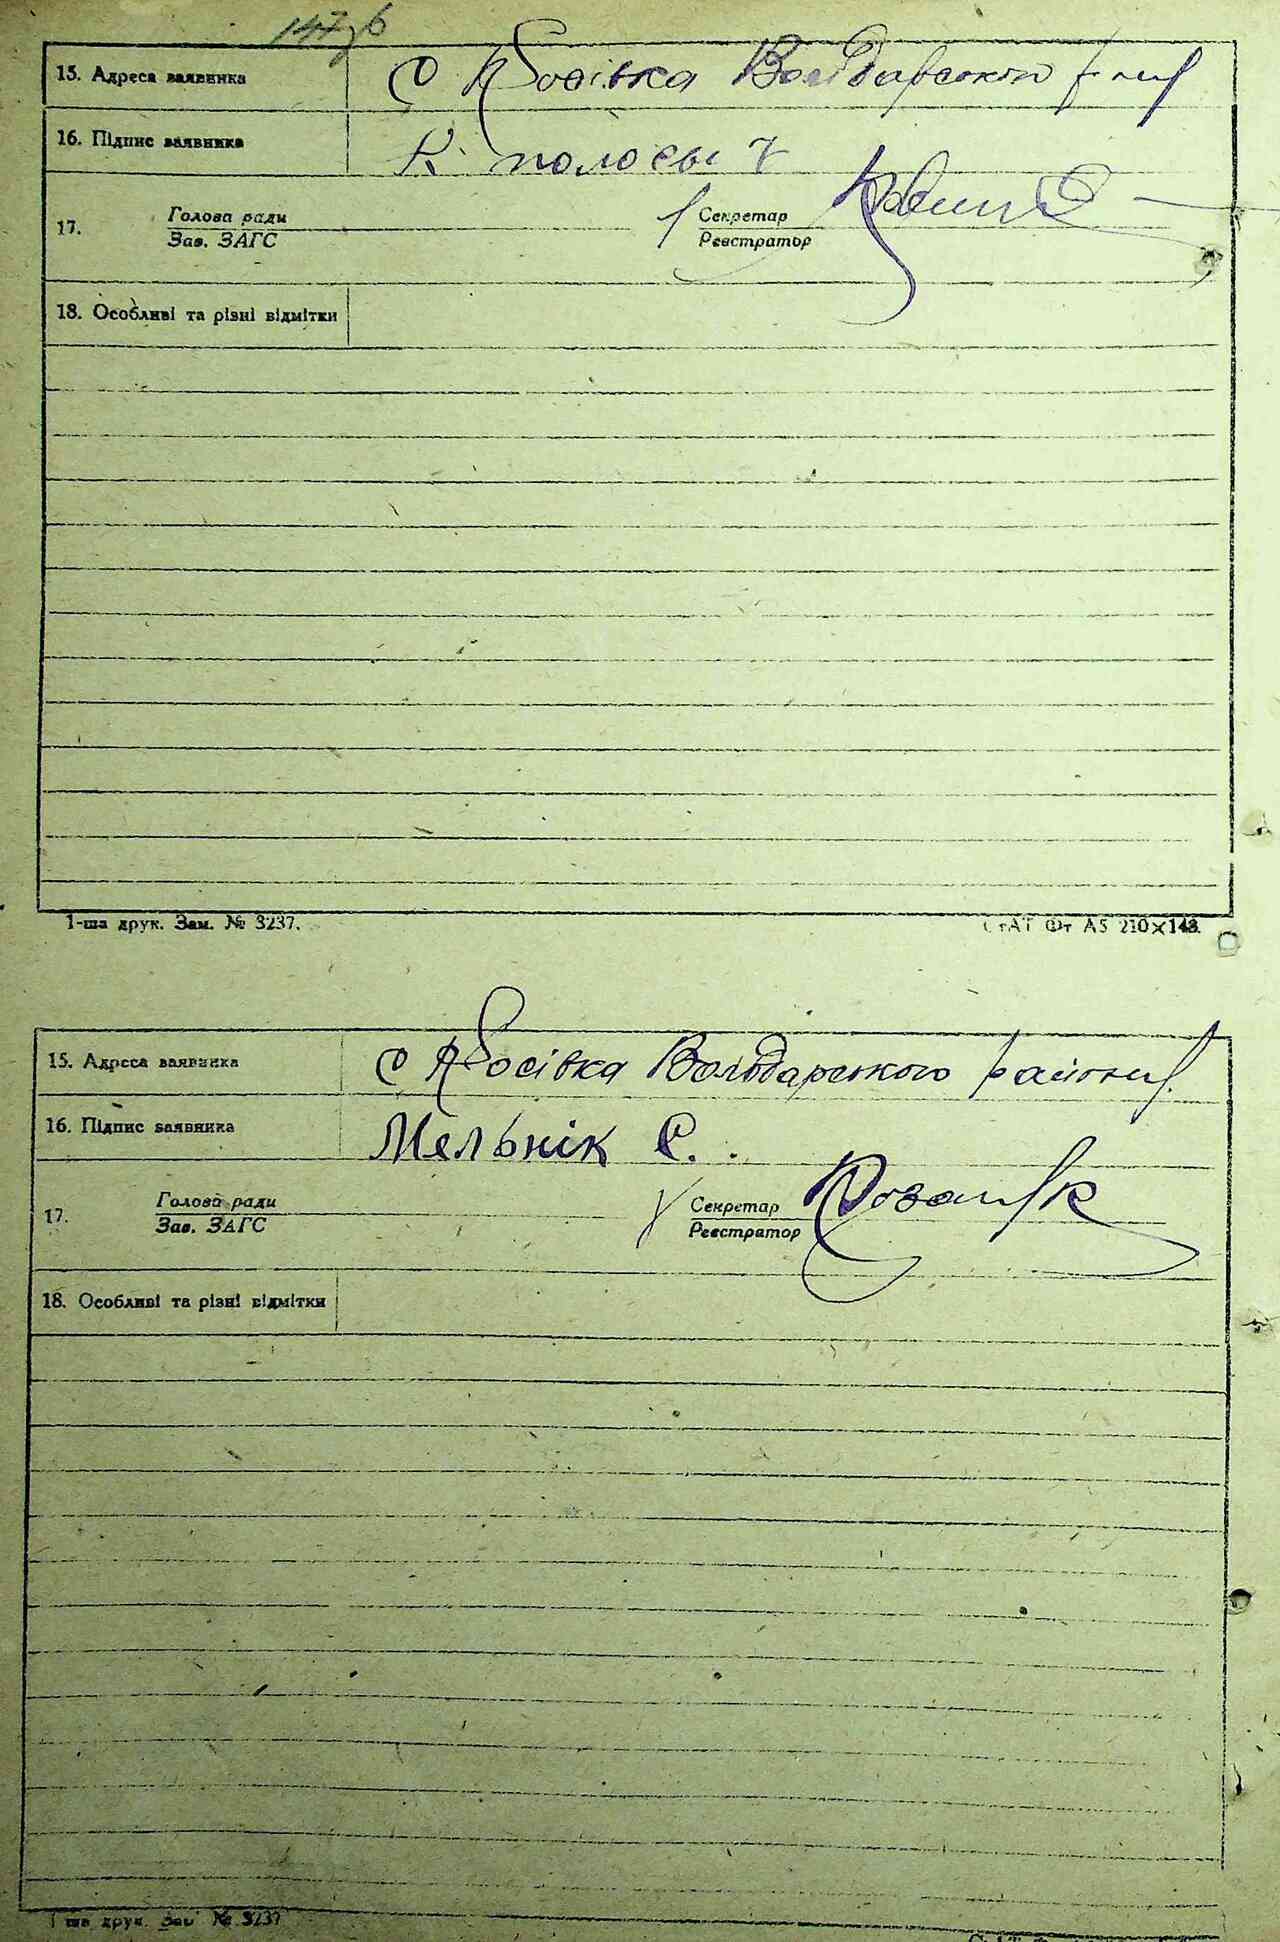 15. Адреса заявника с Косівка Володарського р-ну
16. Підпис заявника К полосы
17. Голова ради Зав. ЗАГС Секретар Реєстратор
18. Особливі та різні відмітки
1-ша друк. Зам. № 3237. СтАТ Фт А5 210×148.
15. Адреса заявника с Косівка Володарського району.
16. Підпис заявника Мельнік Є.
17. Голова ради Зав. ЗАГС Секретар Реєстратор
18. Особливі та різні відмітки
1-ша друк. Зам. № 3237